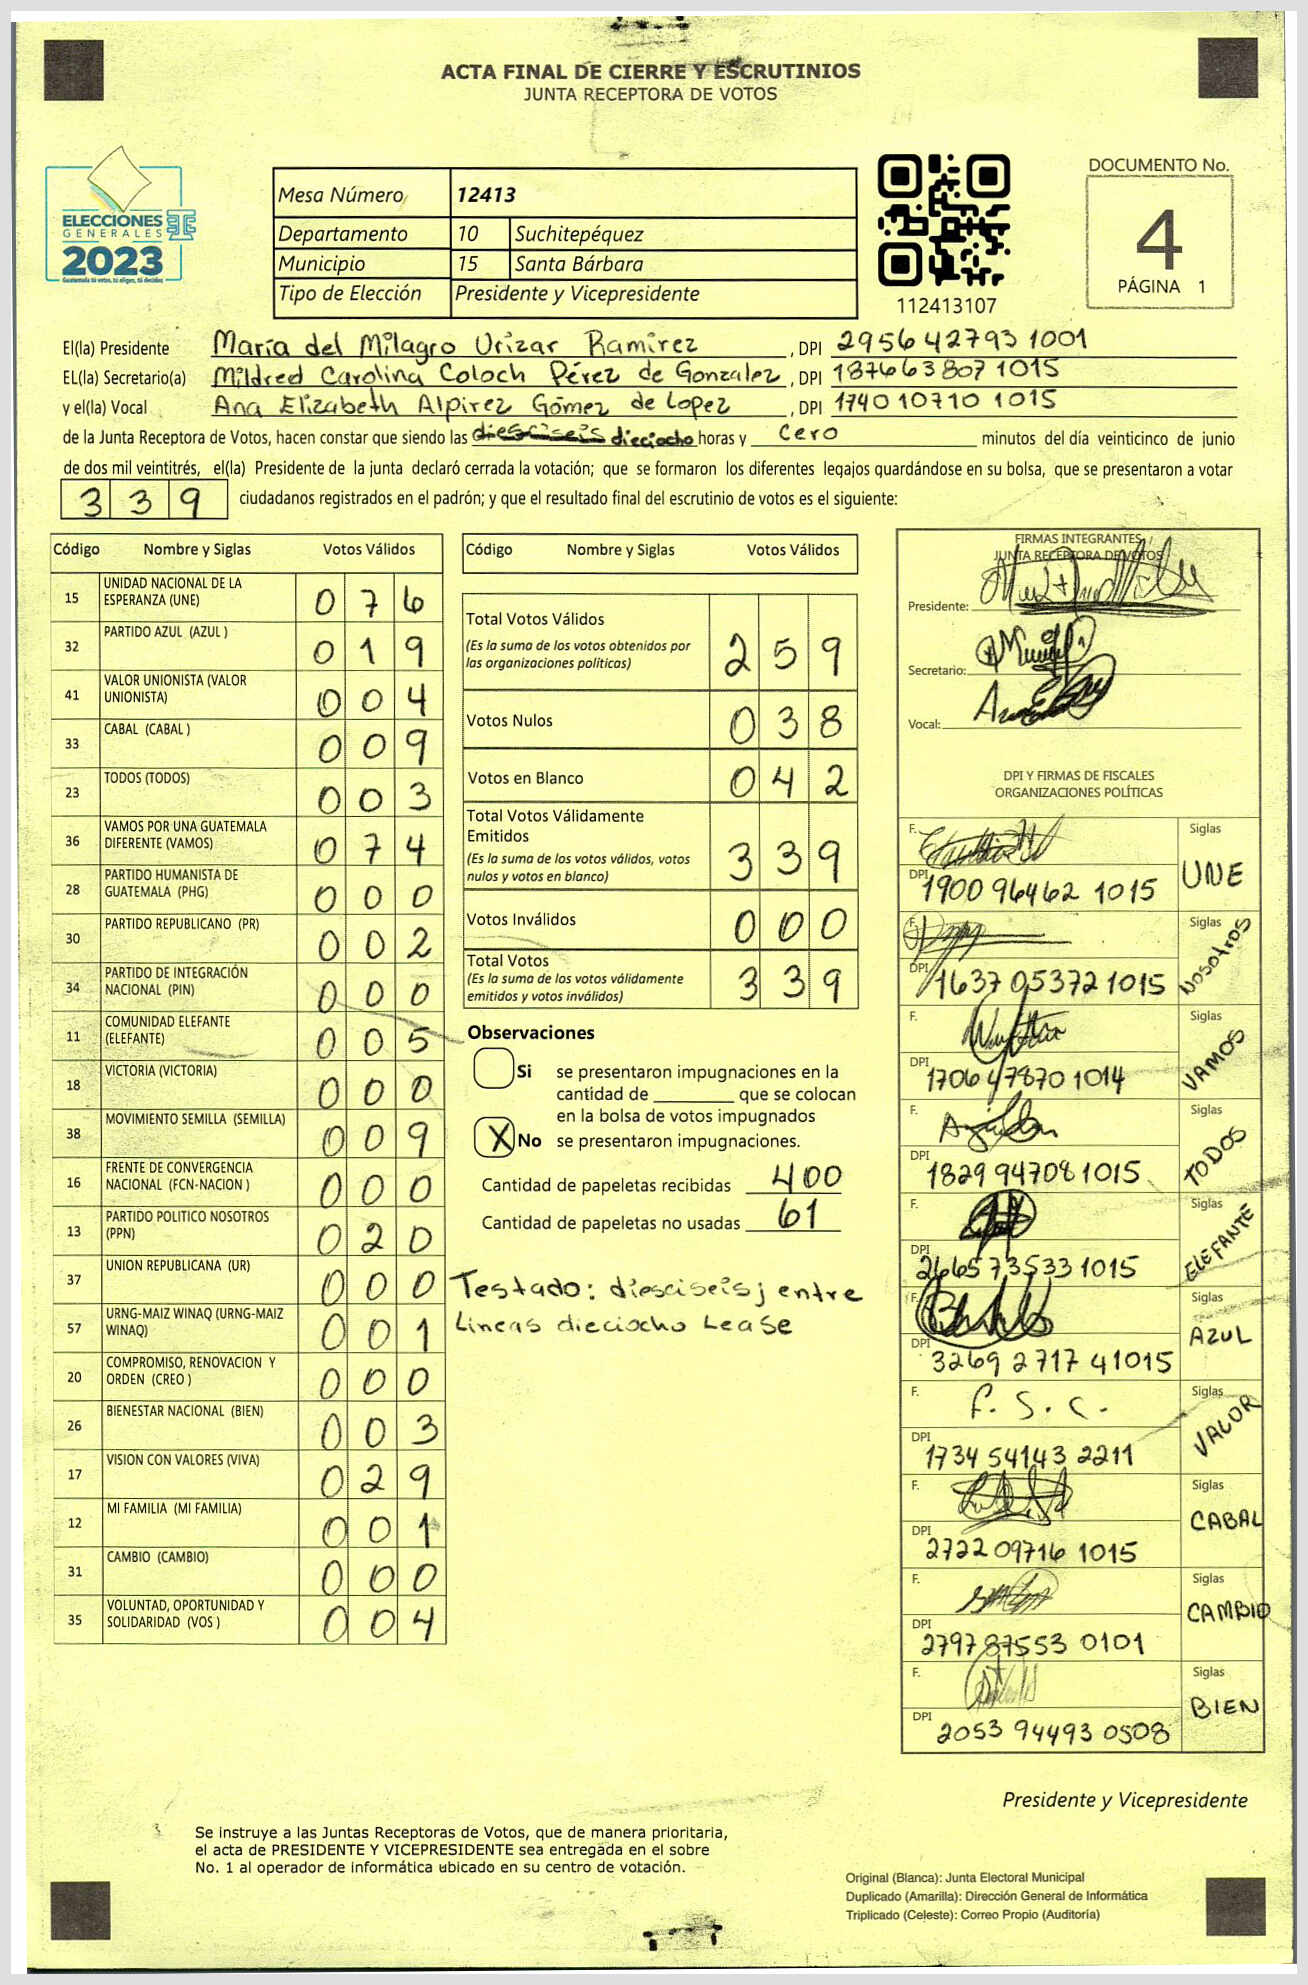 ACTA FINAL DE CIERRE Y ESCRUTINIOS
JUNTA RECEPTORA DE VOTOS
ELECCIONES
GENERALES
2023
Guatemala tú votas, tú eliges, tú decides
Mesa Número 12413
Departamento 10 Suchitepéquez
Municipio 15 Santa Bárbara
Tipo de Elección Presidente y Vicepresidente
112413107
DOCUMENTO No.
4
PÁGINA 1
El(la) Presidente María del Milagro Urizar Ramirez, DPI 2956 42793 1001
EL(la) Secretario(a) Mildred Carolina Coloch Pérez de Gonzalez, DPI 187663807 1015
y el(la) Vocal Ana Elizabeth Alpirez Gómez de Lopez, DPI 1740 10710 1015
de la Junta Receptora de Votos, hacen constar que siendo las diesciseis dieciocho horas y cero minutos del día veinticinco de junio
de dos mil veintitrés, el(la) Presidente de la junta declaró cerrada la votación; que se formaron los diferentes legajos guardándose en su bolsa, que se presentaron a votar
339 ciudadanos registrados en el padrón; y que el resultado final del escrutinio de votos es el siguiente:
Código Nombre y Siglas Votos Válidos
15 UNIDAD NACIONAL DE LA ESPERANZA (UNE) 076
32 PARTIDO AZUL (AZUL ) 019
41 VALOR UNIONISTA (VALOR UNIONISTA) 004
33 CABAL (CABAL ) 009
23 TODOS (TODOS) 003
36 VAMOS POR UNA GUATEMALA DIFERENTE (VAMOS) 074
28 PARTIDO HUMANISTA DE GUATEMALA (PHG) 000
30 PARTIDO REPUBLICANO (PR) 002
34 PARTIDO DE INTEGRACIÓN NACIONAL (PIN) 000
11 COMUNIDAD ELEFANTE (ELEFANTE) 005
18 VICTORIA (VICTORIA) 000
38 MOVIMIENTO SEMILLA (SEMILLA) 009
16 FRENTE DE CONVERGENCIA NACIONAL (FCN-NACION ) 000
13 PARTIDO POLITICO NOSOTROS (PPN) 020
37 UNION REPUBLICANA (UR) 000
57 URNG-MAIZ WINAQ (URNG-MAIZ WINAQ) 001
20 COMPROMISO, RENOVACION Y ORDEN (CREO ) 000
26 BIENESTAR NACIONAL (BIEN) 003
17 VISION CON VALORES (VIVA) 029
12 MI FAMILIA (MI FAMILIA) 001
31 CAMBIO (CAMBIO) 000
35 VOLUNTAD, OPORTUNIDAD Y SOLIDARIDAD (VOS ) 004
Código Nombre y Siglas Votos Válidos
Total Votos Válidos 259
(Es la suma de los votos obtenidos por
las organizaciones políticas)
Votos Nulos 038
Votos en Blanco 042
Total Votos Válidamente
Emitidos 339
(Es la suma de los votos válidos, votos
nulos y votos en blanco)
Votos Inválidos 000
Total Votos 339
(Es la suma de los votos válidamente
emitidos y votos inválidos)
Observaciones
Si se presentaron impugnaciones en la
cantidad de ________ que se colocan
en la bolsa de votos impugnados
X No se presentaron impugnaciones.
Cantidad de papeletas recibidas 400
Cantidad de papeletas no usadas 61
Testado: diesciseis; entre
Lineas dieciocho Lease
FIRMAS INTEGRANTES
JUNTA RECEPTORA DE VOTOS
Presidente:
Secretario:
Vocal:
DPI Y FIRMAS DE FISCALES
ORGANIZACIONES POLÍTICAS
F. Siglas
DPI 1900 96462 1015 UNE
F. Siglas
DPI 1637 05372 1015 Nosotros
F. Siglas
DPI 1706 47870 1014 VAMOS
F. Siglas
DPI 1829 94708 1015 TODOS
F. Siglas
DPI 2665 73533 1015 ELEFANTE
F. Siglas
DPI 3269 2717 41015 AZUL
F. F. S. C. Siglas
DPI 1734 54143 2211 VALOR
F. Siglas
DPI 2722 09716 1015 CABAL
F. Siglas
DPI 2797 87553 0101 CAMBIO
F. Siglas
DPI 2053 94493 0508 BIEN
Presidente y Vicepresidente
Se instruye a las Juntas Receptoras de Votos, que de manera prioritaria,
el acta de PRESIDENTE Y VICEPRESIDENTE sea entregada en el sobre
No. 1 al operador de informática ubicado en su centro de votación.
Original (Blanca): Junta Electoral Municipal
Duplicado (Amarilla): Dirección General de Informática
Triplicado (Celeste): Correo Propio (Auditoría)